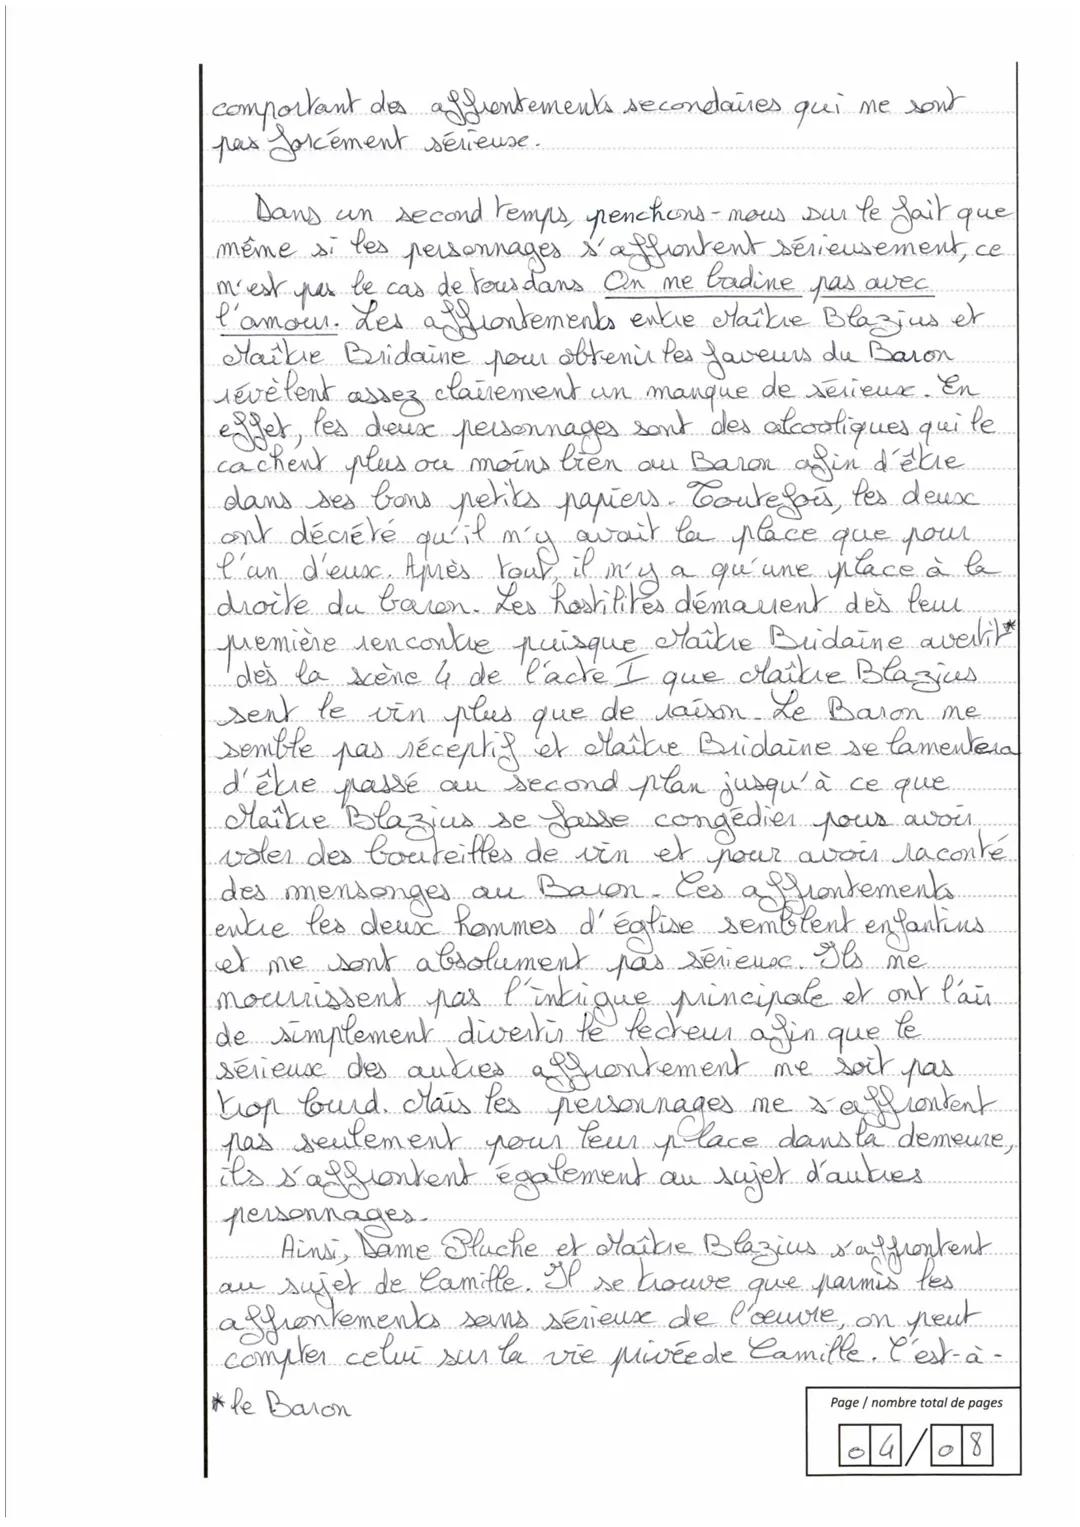 comportant des affrontements secondaires qui ne sont
pas forcément sérieuse.
Dans un second temps, penchons-nous sur le fait que
même si les personnages s'affrontent sérieusement, ce
n'est pas le cas de tous dans On ne badine pas avec
l'amour. Les affrontements entre Maître Blazius et
Maître Bridaine pour obtenir les faveurs du Baron
révèlent assez clairement un manque de sérieux. En
effet, les deux personnages sont des alcooliques qui le
cachent plus ou moins bien au Baron afin d'être
dans ses bons petits papiers. Toutefois, les deux
ont décrété qu'il n'y avait la place que pour
l'un d'eux. Après tout, il n'y a qu'une place à la
droite du baron. Les hostilités démarrent dès leur
première rencontre puisque Maître Bridaine avertit*
dès la scène 4 de l'acte I que Maître Blazius
sent le vin plus que de raison. Le Baron ne
semble pas réceptif et Maître Bridaine se lamentera
d'être passé au second plan jusqu'à ce que
Maître Blazius se fasse congédier pour avoir
voler des bouteilles de vin et pour avoir raconté
des mensonges au Baron. Ces affrontements
entre les deux hommes d'église semblent enfantins
et ne sont absolument pas sérieux. Ils ne
nourrissent pas l'intrigue principale et ont l'air
de simplement divertir le lecteur afin que le
sérieux des autres affrontement ne soit pas
trop lourd. Mais les personnages ne s'affrontent
pas seulement pour leur place dans la demeure,
ils s'affrontent également au sujet d'autres
personnages.
Ainsi, Dame Pluche et Maître Blazius s'affrontent
au sujet de Camille. Il se trouve que parmis les
affrontements sans sérieux de l'oeuvre, on peut
compter celui sur la vie privée de Camille. C'est-à-
* le Baron
Page / nombre total de pages
04/08